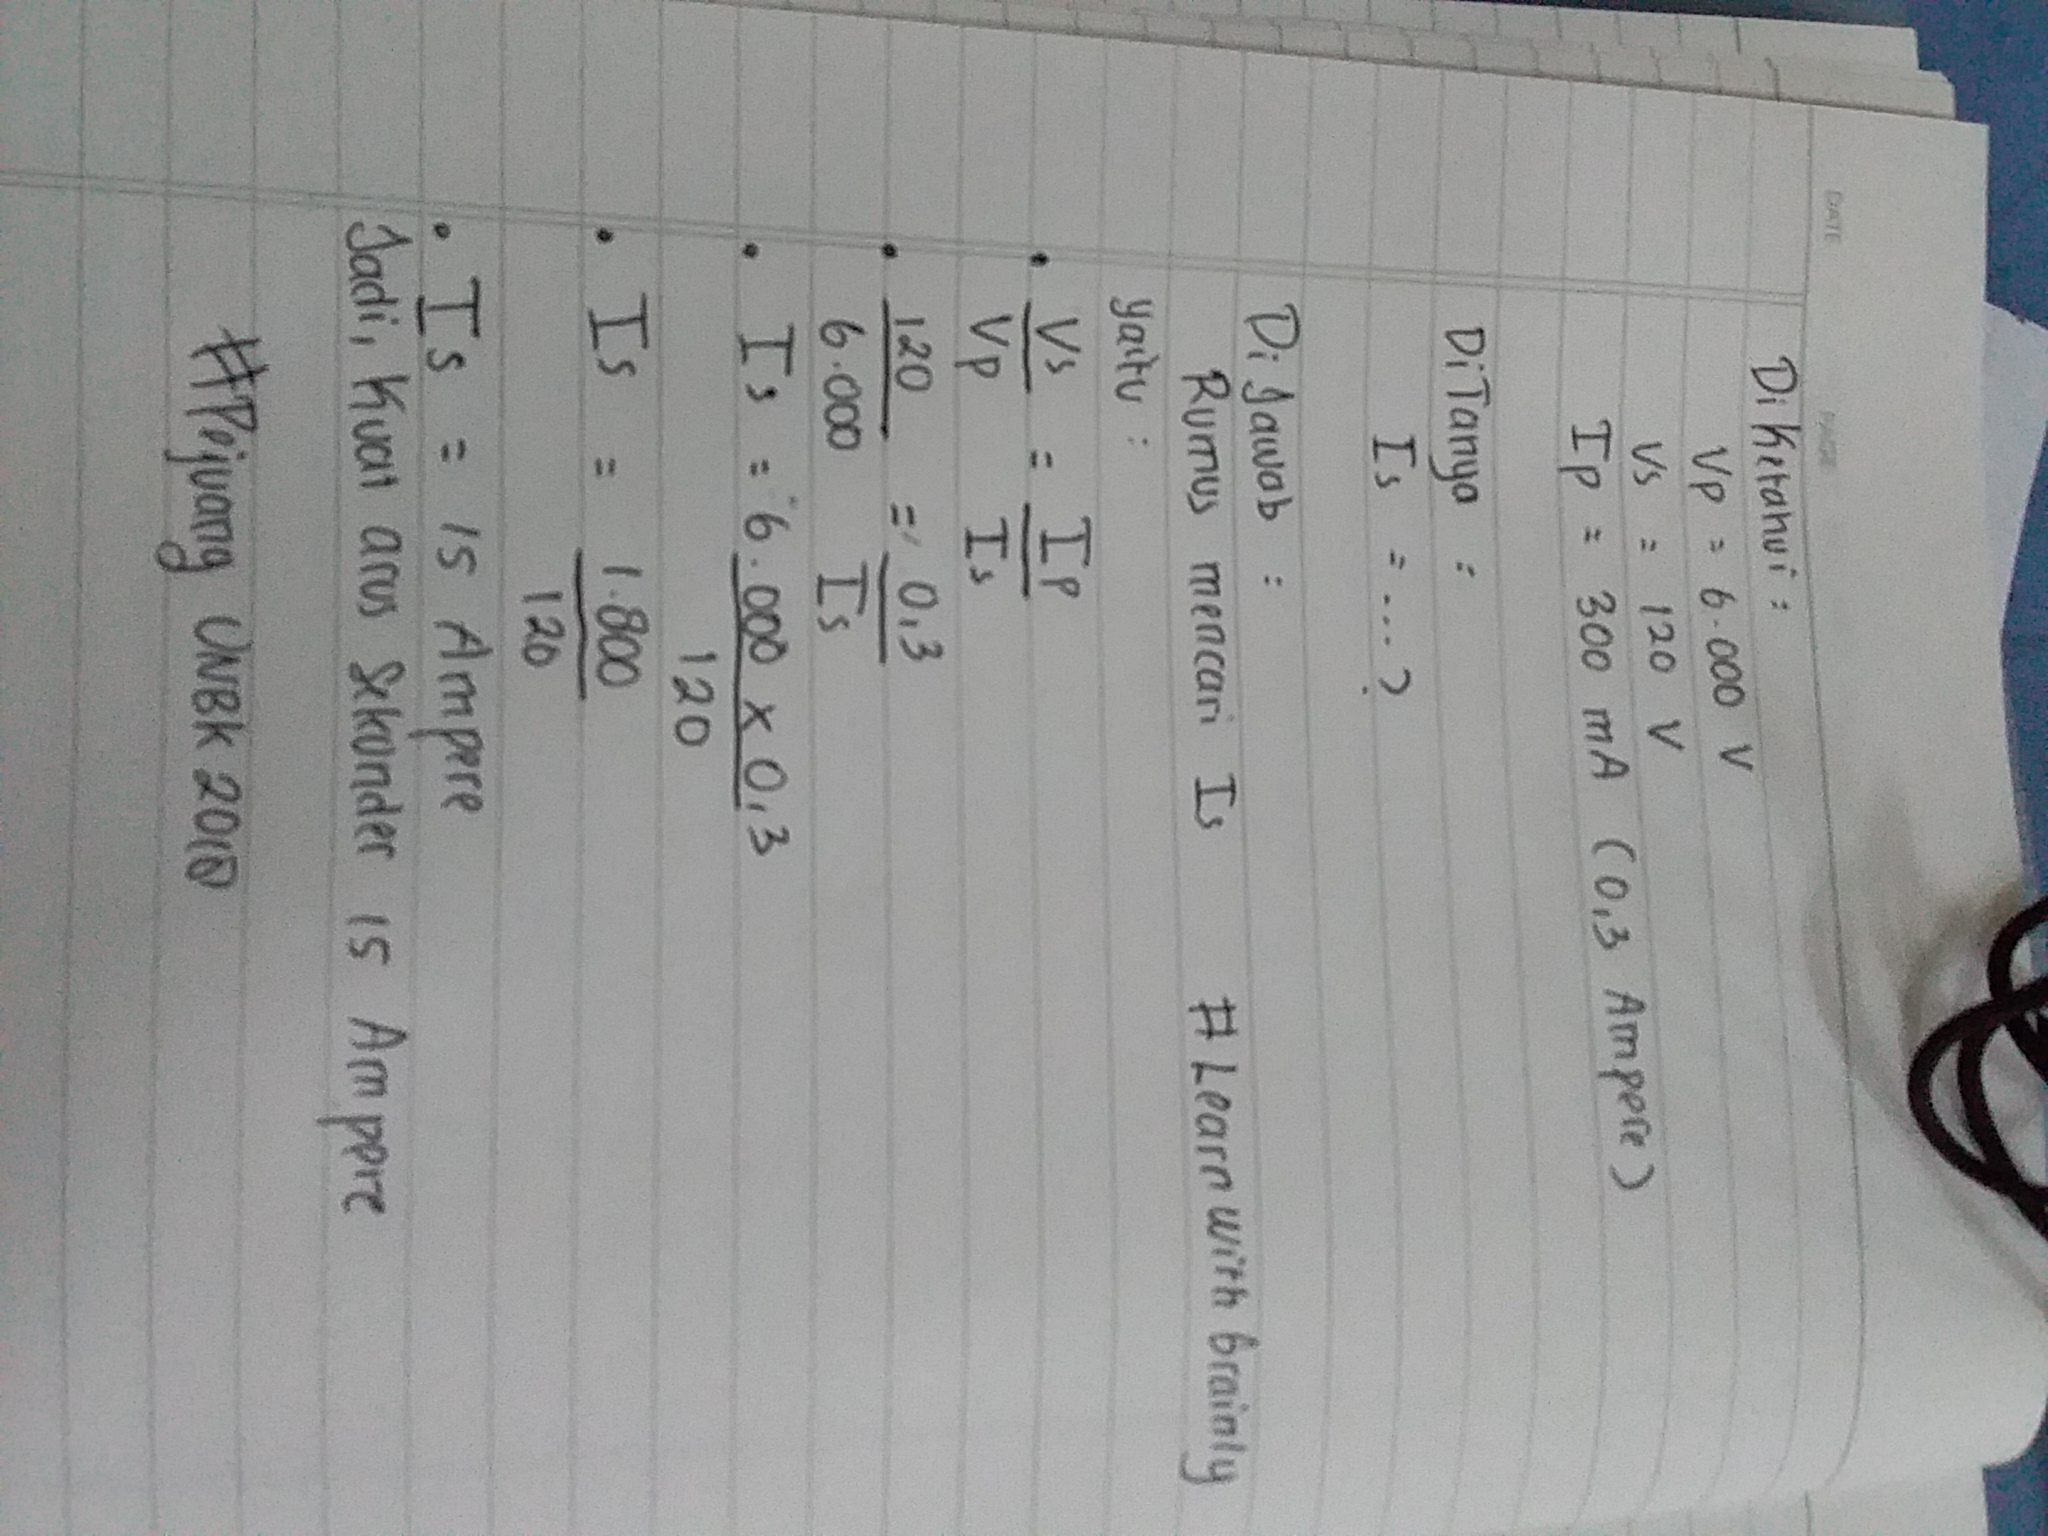 DATE
PAGE
Diketahui :
Vp = 6.000 V
Vs = 120 V
Ip = 300 mA (0,3 Ampere)
DiTanya :
Is = .... ?
Di Jawab :
Rumus mencari Is # Learn with brainly
yaitu :
• Vs = Ip
Vp Is
• 120 = 0,3
6.000 Is
• Is = 6.000 x 0,3
120
• Is = 1.800
120
• Is = 15 Ampere
Jadi, Kuat arus Sekunder 15 Ampere
#Pejuang UNBK